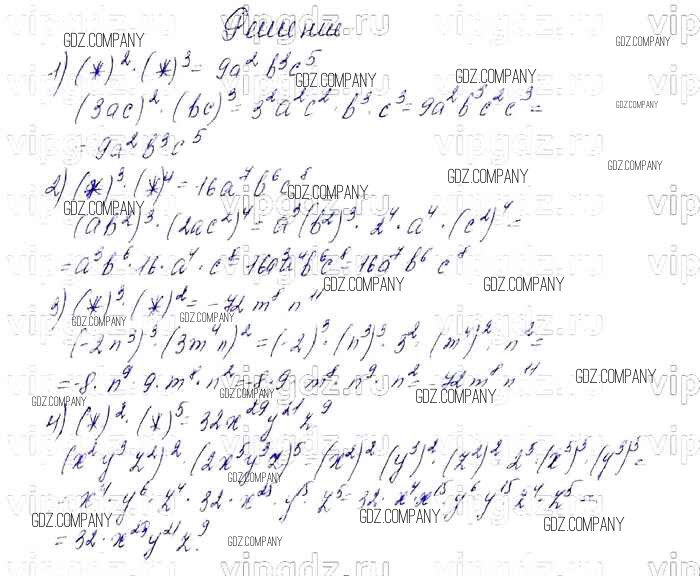 Решение
1) (*)² · (*)³ = 9a²b³c⁵
(3ac)² · (bc)³ = 3²a²c² · b³ · c³ = 9a²b³c²c³ =
= 9a²b³c⁵
2) (*)³ · (*)⁴ = 16a⁷b⁶c⁸
(ab²)³ · (2ac²)⁴ = a³(b²)³ · 2⁴ · a⁴ · (c²)⁴ =
= a³b⁶ · 16 · a⁴ · c⁸ = 16a³a⁴b⁶c⁸ = 16a⁷b⁶c⁸
3) (*)³ · (*)² = -72m⁸n¹¹
(-2n³)³ · (3m⁴n)² = (-2)³ · (n³)³ · 3² · (m⁴)² · n² =
= -8 · n⁹ · 9 · m⁸ · n² = -8 · 9 · m⁸ · n⁹ · n² = -72m⁸n¹¹
4) (*)² · (*)⁵ = 32x²⁹y²¹z⁹
(x²y³z²)² · (2x⁵y³z)⁵ = (x²)² · (y³)² · (z²)² · 2⁵ · (x⁵)⁵ · (y³)⁵ =
= x⁴ · y⁶ · z⁴ · 32 · x²⁵ · y¹⁵ · z⁵ = 32 · x⁴x²⁵y⁶y¹⁵z⁴ · z⁵ =
= 32 · x²⁹y²¹z⁹.
GDZ.COMPANY
vipgdz.ru